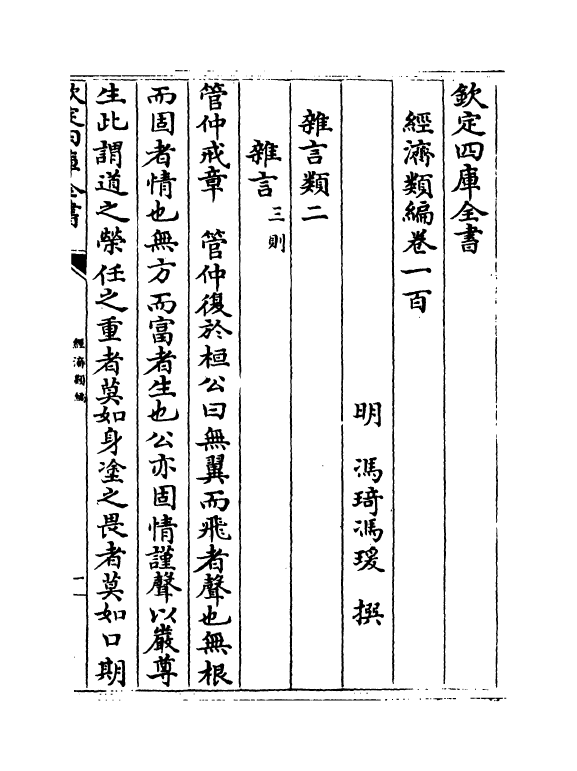 欽定四庫全書
經濟類編卷一百
明 馮琦馮瑗 撰
雜言類二
雜言三則
管仲戒章 管仲復於桓公曰無翼而飛者聲也無根
而固者情也無方而富者生也公亦固情謹聲以嚴尊
生此謂道之榮任之重者莫如身塗之畏者莫如口期
欽定四庫全書
經濟類編
一